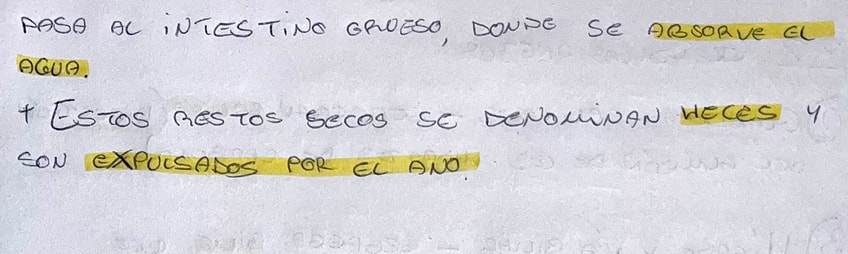 PASA AL INTESTINO GRUESO, DONDE SE ABSORVE EL
AGUA.
+ ESTOS RESTOS SECOS SE DENOMINAN HECES Y
SON EXPULSADOS POR EL ANO.